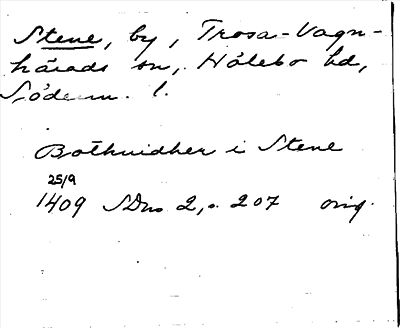 Stene, by, Trosa-Vagn-
härads sn, Hölebo hd,
Söderm. l.
Bothuidher i Stene
25/9
1409 SDns 2, s. 207 orig.